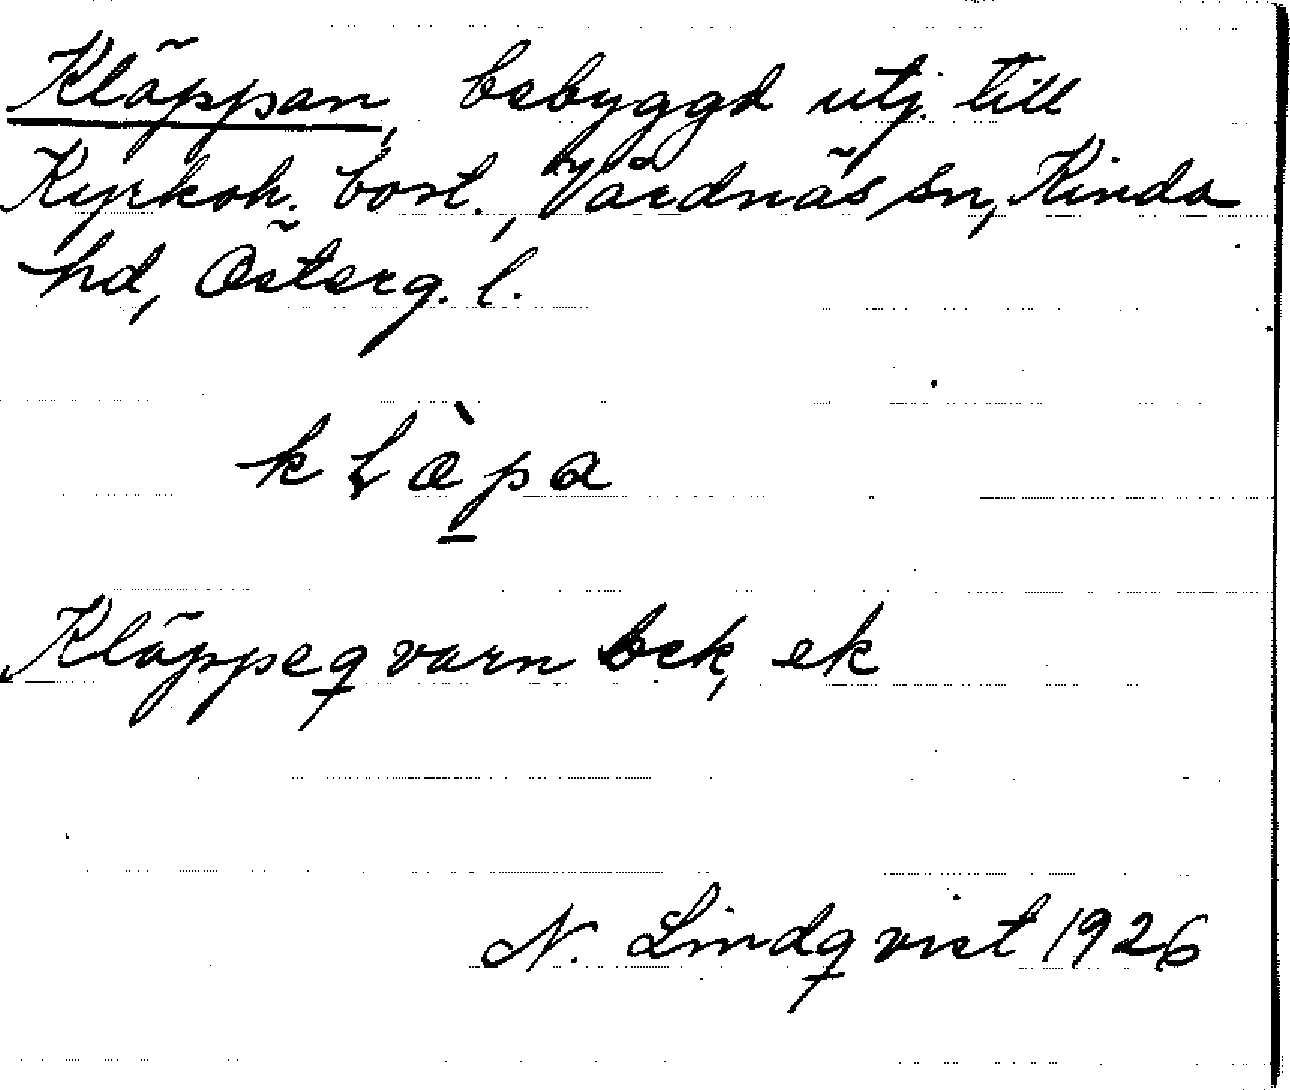 Kläppan, bebyggd utj. till
Kyrkoh. bost., Vårdnäs sn, Kinda
hd, Österg. l.
Kläppeqvarn bek, ek
N. Lindqvist 1926